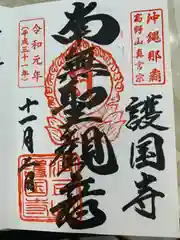 沖縄那覇
高野山真言宗
護国寺
南無聖観音
令和元年
(平成三十一年)
十一月
日